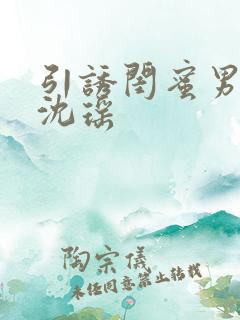 引誘閏蜜男
沈瑶
陶宗儀
未经同意禁止转载